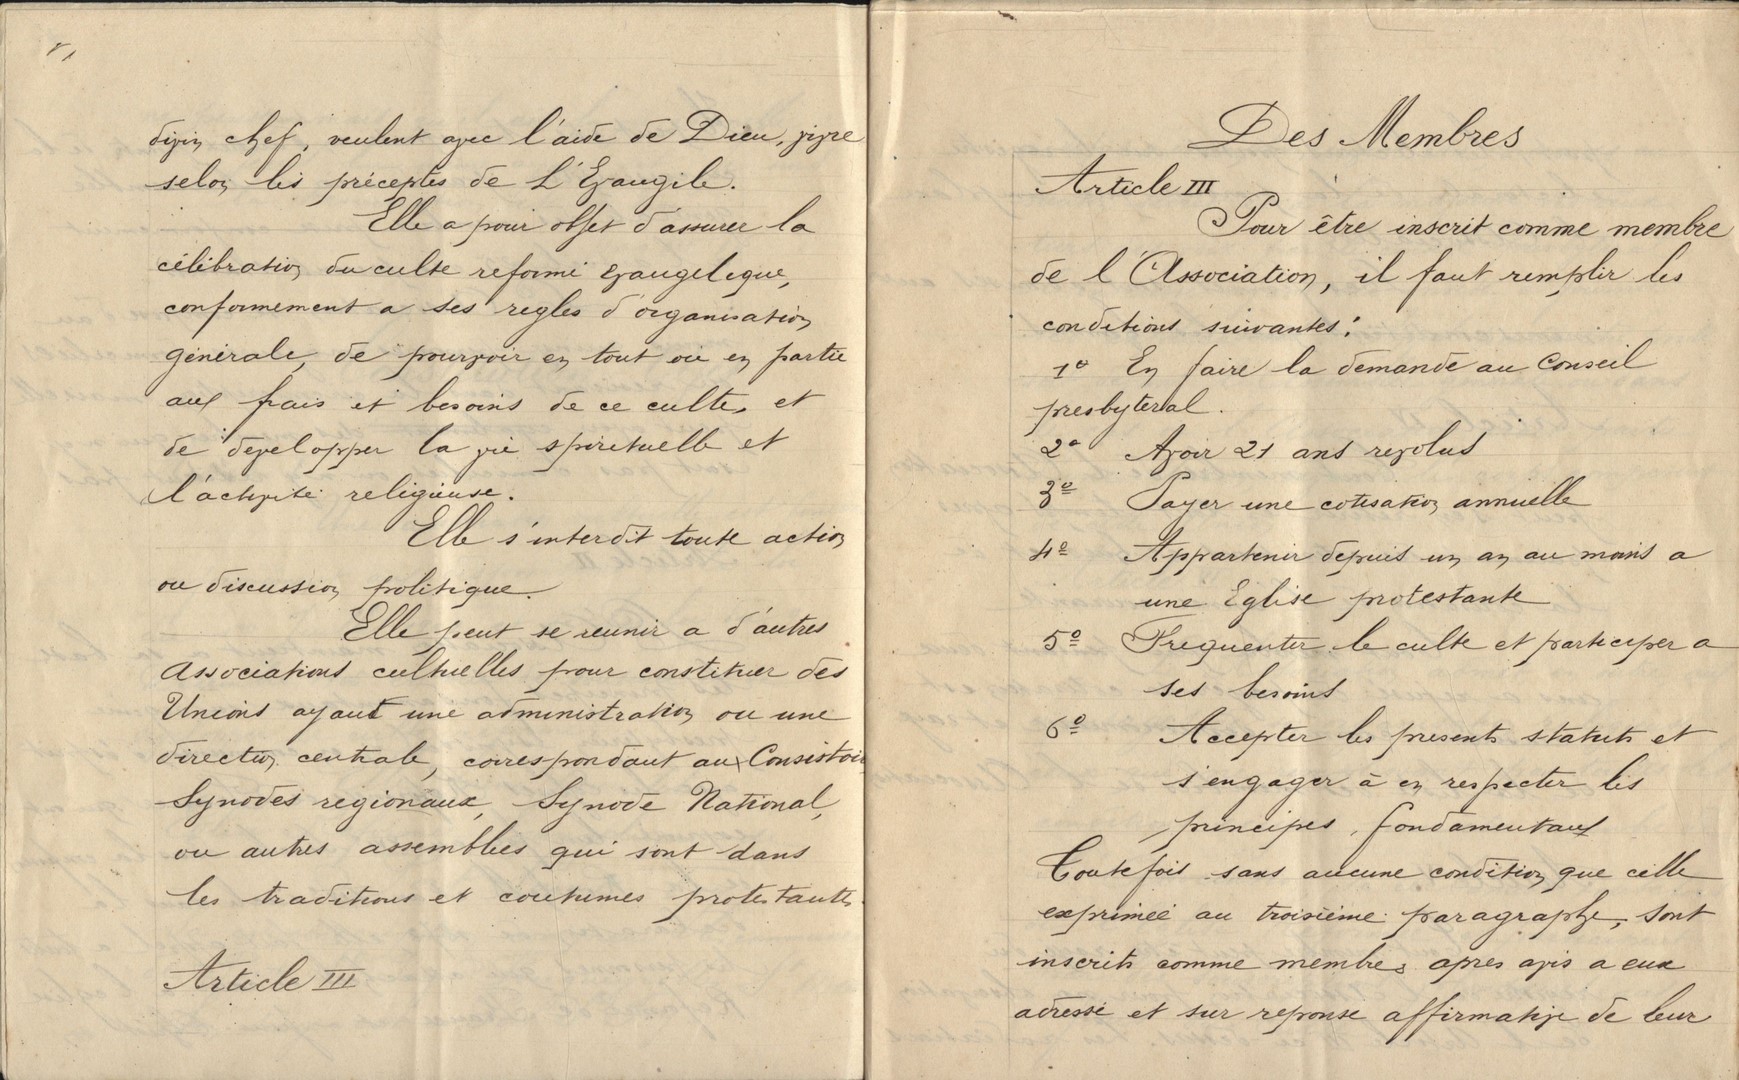 divin chef, veulent avec l'aide de Dieu, vivre
selon les préceptes de L'Evangile.
Elle a pour objet d'assurer la
célébration du culte reformé evangelique,
conformement a ses regles d'organisation
générale, de pourvoir en tout ou en partie
aux frais et besoins de ce culte, et
de developper la vie spirituelle et
l'activité religieuse.
Elle s'interdit toute action
ou discussion politique.
Elle peut se reunir a d'autres
associations cultuelles pour constituer des
Unions ayant une administration ou une
direction centrale, correspondant aux Consistoire
Synodes regionaux, Synode National,
ou autres assemblées qui sont dans
les traditions et coutumes protestantes.
Article III
Des Membres
Article III
Pour être inscrit comme membre
de l'Association, il faut remplir les
conditions suivantes:
1º En faire la demande au Conseil
presbyteral.
2º Avoir 21 ans revolus
3º Payer une cotisation annuelle
4º Appartenir depuis un an au moins a
une Eglise protestante
5º Frequenter le culte et participer a
ses besoins
6º Accepter les presents statuts et
s'engager à en respecter les
principes fondamentaux
Toutefois sans aucune condition que celle
exprimée au troisième paragraphe, sont
inscrits comme membres apres avis a eux
adressé et sur reponse affirmative de leur